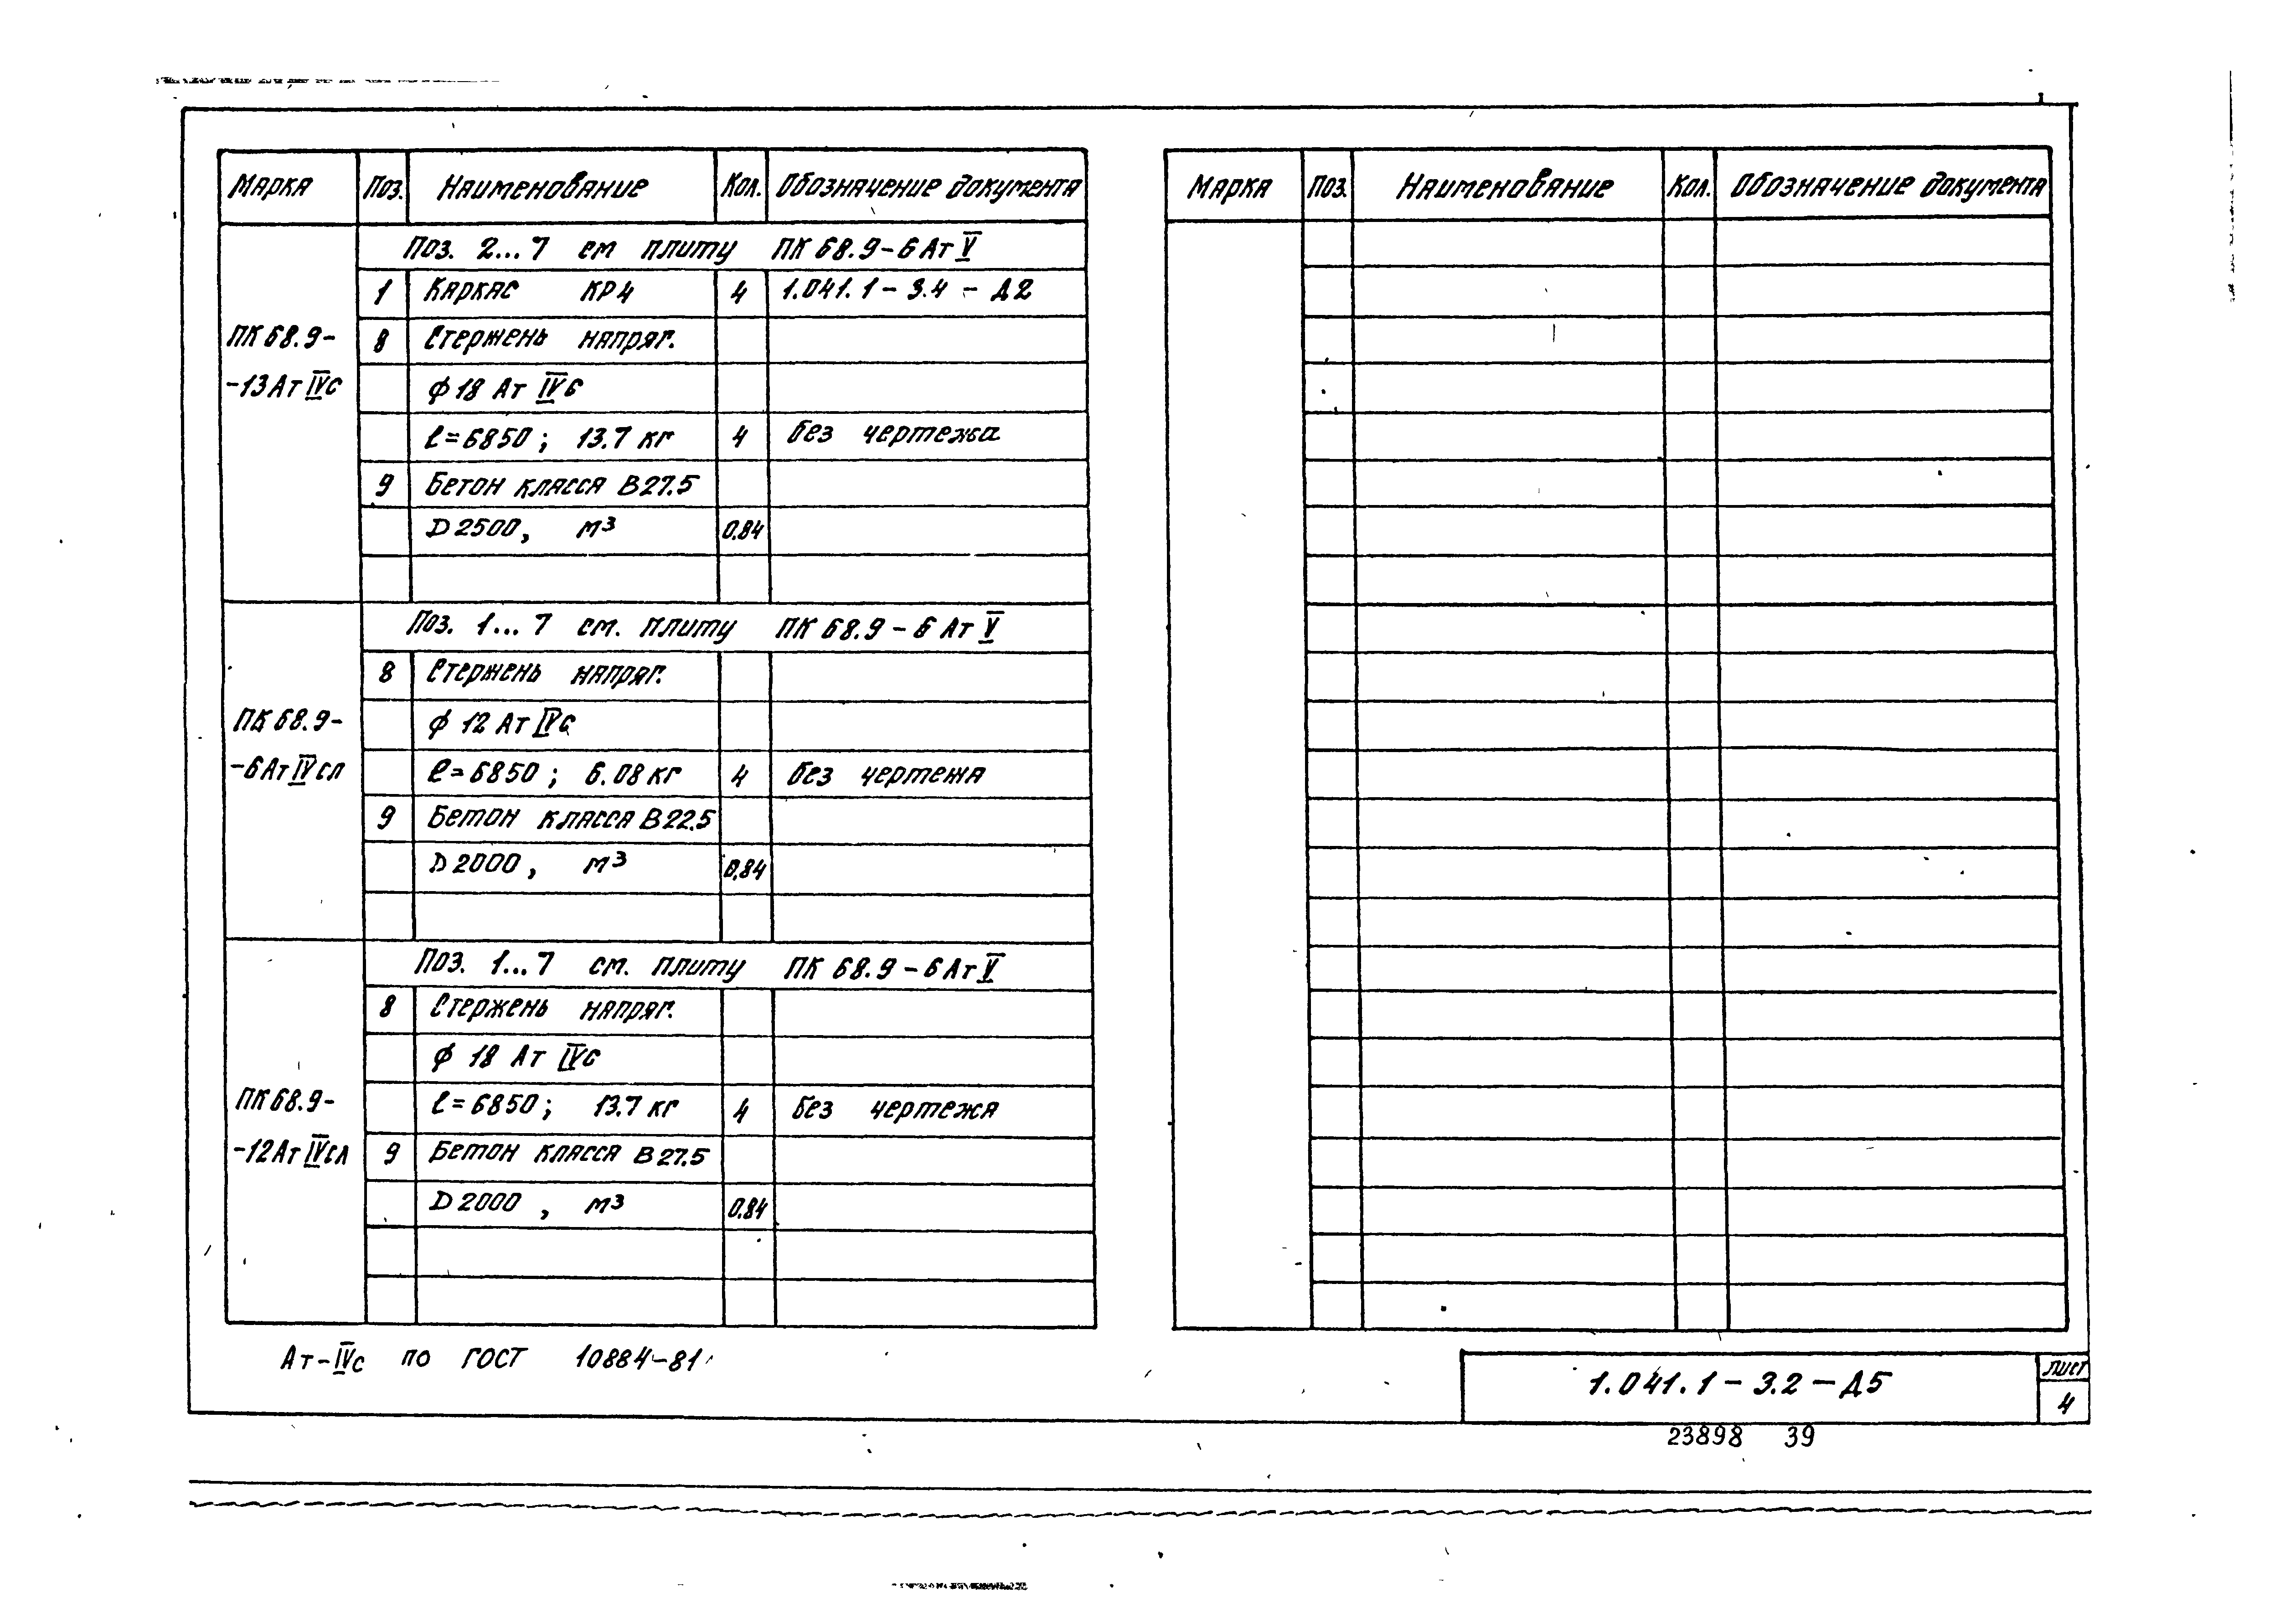 Марка Поз. Наименование Кол. Обозначение документа
Поз. 2...7 см плиту ПК 68.9-6 Ат V
1 Каркас КР4 4 1.041.1-3.4-Д2
ПК 68.9- 8 Стержень напряг.
-13 Ат IVС ф 18 Ат IVС
ℓ=6850; 13.7 кг 4 без чертежа
9 Бетон класса В27.5
D 2500, м³ 0.84
Поз. 1...7 см. плиту ПК 68.9-6 Ат V
8 Стержень напряг.
ПК 68.9- ф 12 Ат IVС
-6 Ат IVСЛ ℓ=6850; 6.08 кг 4 без чертежа
9 Бетон класса В22.5
D 2000, м³ 0.84
Поз. 1...7 см. плиту ПК 68.9-6 Ат V
8 Стержень напряг.
ф 18 Ат IVС
ПК 68.9- ℓ=6850; 13.7 кг 4 без чертежа
-12 Ат IVСЛ 9 Бетон класса В27.5
D 2000, м³ 0.84
Ат-IVС по ГОСТ 10884-81
Марка Поз. Наименование Кол. Обозначение документа
1.041.1-3.2-Д5
Лист
4
23898 39